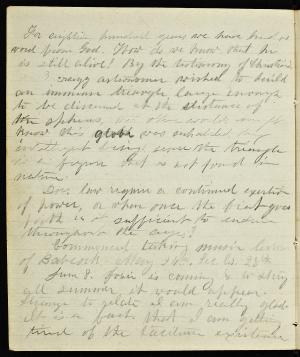 For eighteen hundred years we have had no
word from God. How do we know that he
is still alive? By the testimony of Christians
? crazy astronomer wished to build
an immense triangle large enough
to be discerned at the distance of
the spheres,
know this globe was inhabited by
intelligent beings since the triangle
is a figure that is not found in
nature.
Does law require a continued exertion
of power, or when once the fiat goes
forth is it sufficient to endure
throughout the ages?
Commenced taking music lessons
of Babcock May
June 8. Josie is coming to stay
all summer, it would appear.
Strange to relate I am really glad.
It is a fact that I am getting
tired of the taciturn existence